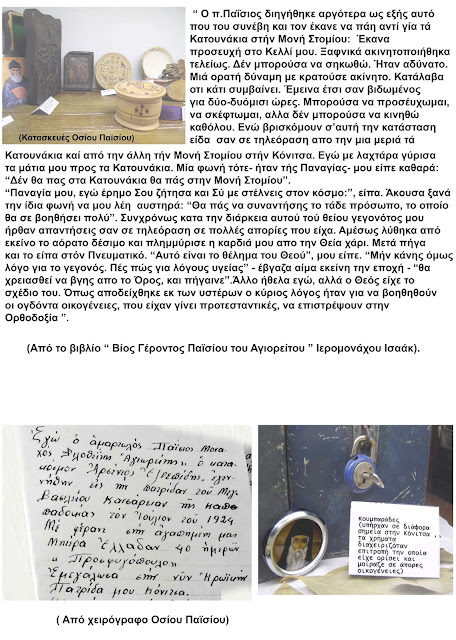 “ Ο π.Παϊσιος διηγήθηκε αργότερα ως εξής αυτό
που του συνέβη και τον έκανε να πάη αντί γία τά
Κατουνάκια στήν Μονή Στομίου: Έκανα
προσευχή στο Κελλί μου. Ξαφνικά ακινητοποιήθηκα
τελείως. Δέν μπορούσα να σηκωθώ. Ήταν αδύνατο.
Μιά ορατή δύναμη με κρατούσε ακίνητο. Κατάλαβα
οτι κάτι συμβαίνει. Έμεινα έτσι σαν βιδωμένος
για δύο-δυόμισι ώρες. Μπορούσα να προσέυχωμαι,
να σκέφτωμαι, αλλα δέν μπορούσα να κινηθώ
καθόλου. Ενώ βρισκόμουν σ’αυτή την κατάσταση
είδα σαν σε τηλεόραση απο την μια μεριά τά
(Κατασκευές Οσίου Παϊσίου)
Κατουνάκια καί από την άλλη τήν Μονή Στομίου στήν Κόνιτσα. Εγώ με λαχτάρα γύρισα
τα μάτια μου προς τα Κατουνάκια. Μία φωνή τότε- ήταν τής Παναγίας- μου είπε καθαρά:
“Δέν θα πας στα Κατουνάκια θα πάς στην Μονή Στομίου”.
“Παναγία μου, εγώ έρημο Σου ζήτησα και Σύ με στέλνεις στον κόσμο:”, είπα. Άκουσα ξανά
την ίδια φωνή να μου λέη αυστηρά: “Θα πάς να συναντήσης το τάδε πρόσωπο, το οποίο
θα σε βοηθήσει πολύ”. Συνχρόνως κατα την διάρκεια αυτού τού θείου γεγονότος μου
ήρθαν απαντήσεις σαν σε τηλεόραση σε πολλές απορίες που είχα. Αμέσως λύθηκα από
εκείνο το αόρατο δέσιμο και πλημμύρισε η καρδιά μου απο την Θεία χάρι. Μετά πήγα
και το είπα στόν Πνευματικό. “Αυτό είναι το θέλημα του Θεού”, μου είπε. “Μήν κάνης όμως
λόγο για το γεγονός. Πές πώς για λόγους υγείας” - έβγαζα αίμα εκείνη την εποχή - “θα
χρειασθεί να βγης απο το Όρος, και πήγαινε”.Άλλο ήθελα εγώ, αλλά ο Θεός είχε το
σχέδιο του. Όπως αποδείχθηκε εκ των υστέρων ο κύριος λόγος ήταν για να βοηθηθούν
οι ογδόντα οικογένειες, που είχαν γίνει προτεσταντικές, να επιστρέψουν στην
Ορθοδοξία ”.
(Από το βιβλίο “ Βίος Γέροντος Παϊσίου του Αγιορείτου ” Ιερομονάχου Ισαάκ).
Ἐγώ ὁ ἁμαρτωλός Παΐσιος Μονα-
χός Φιλοθεΐτης Ἁγιορείτης, ὁ κατα
κοσμον Ἀρσένιος Ἐζνεπίδης, ἐγεν-
νήθην εἰς τη πατρίδαν τοῦ Μεγ.
Βασιλείου Καισάρειαν τῆς Καπ
παδοκίας τόν Ἰούλιον τοῦ 1924
Μέ φέραν στη ἀγαπητή μας
Μητέρα Ἑλλάδαν 40 ἡμερῶν
« Προσφυγόπουλο»
Ἐμεγάλωσα στη νῦν Ἡρωϊκήν
Πατρίδα μου Κόνιτσα.
κουμπαράδες
(υπήρχαν σε διάφορα
σημεία στην Κόνιτσα
τα χρήματα
διαχειριζόταν
επιτροπή την οποία
είχε ορίσει και
μοίραζε σε άπορες
οικογένειες)
( Από χειρόγραφο Οσίου Παϊσίου)